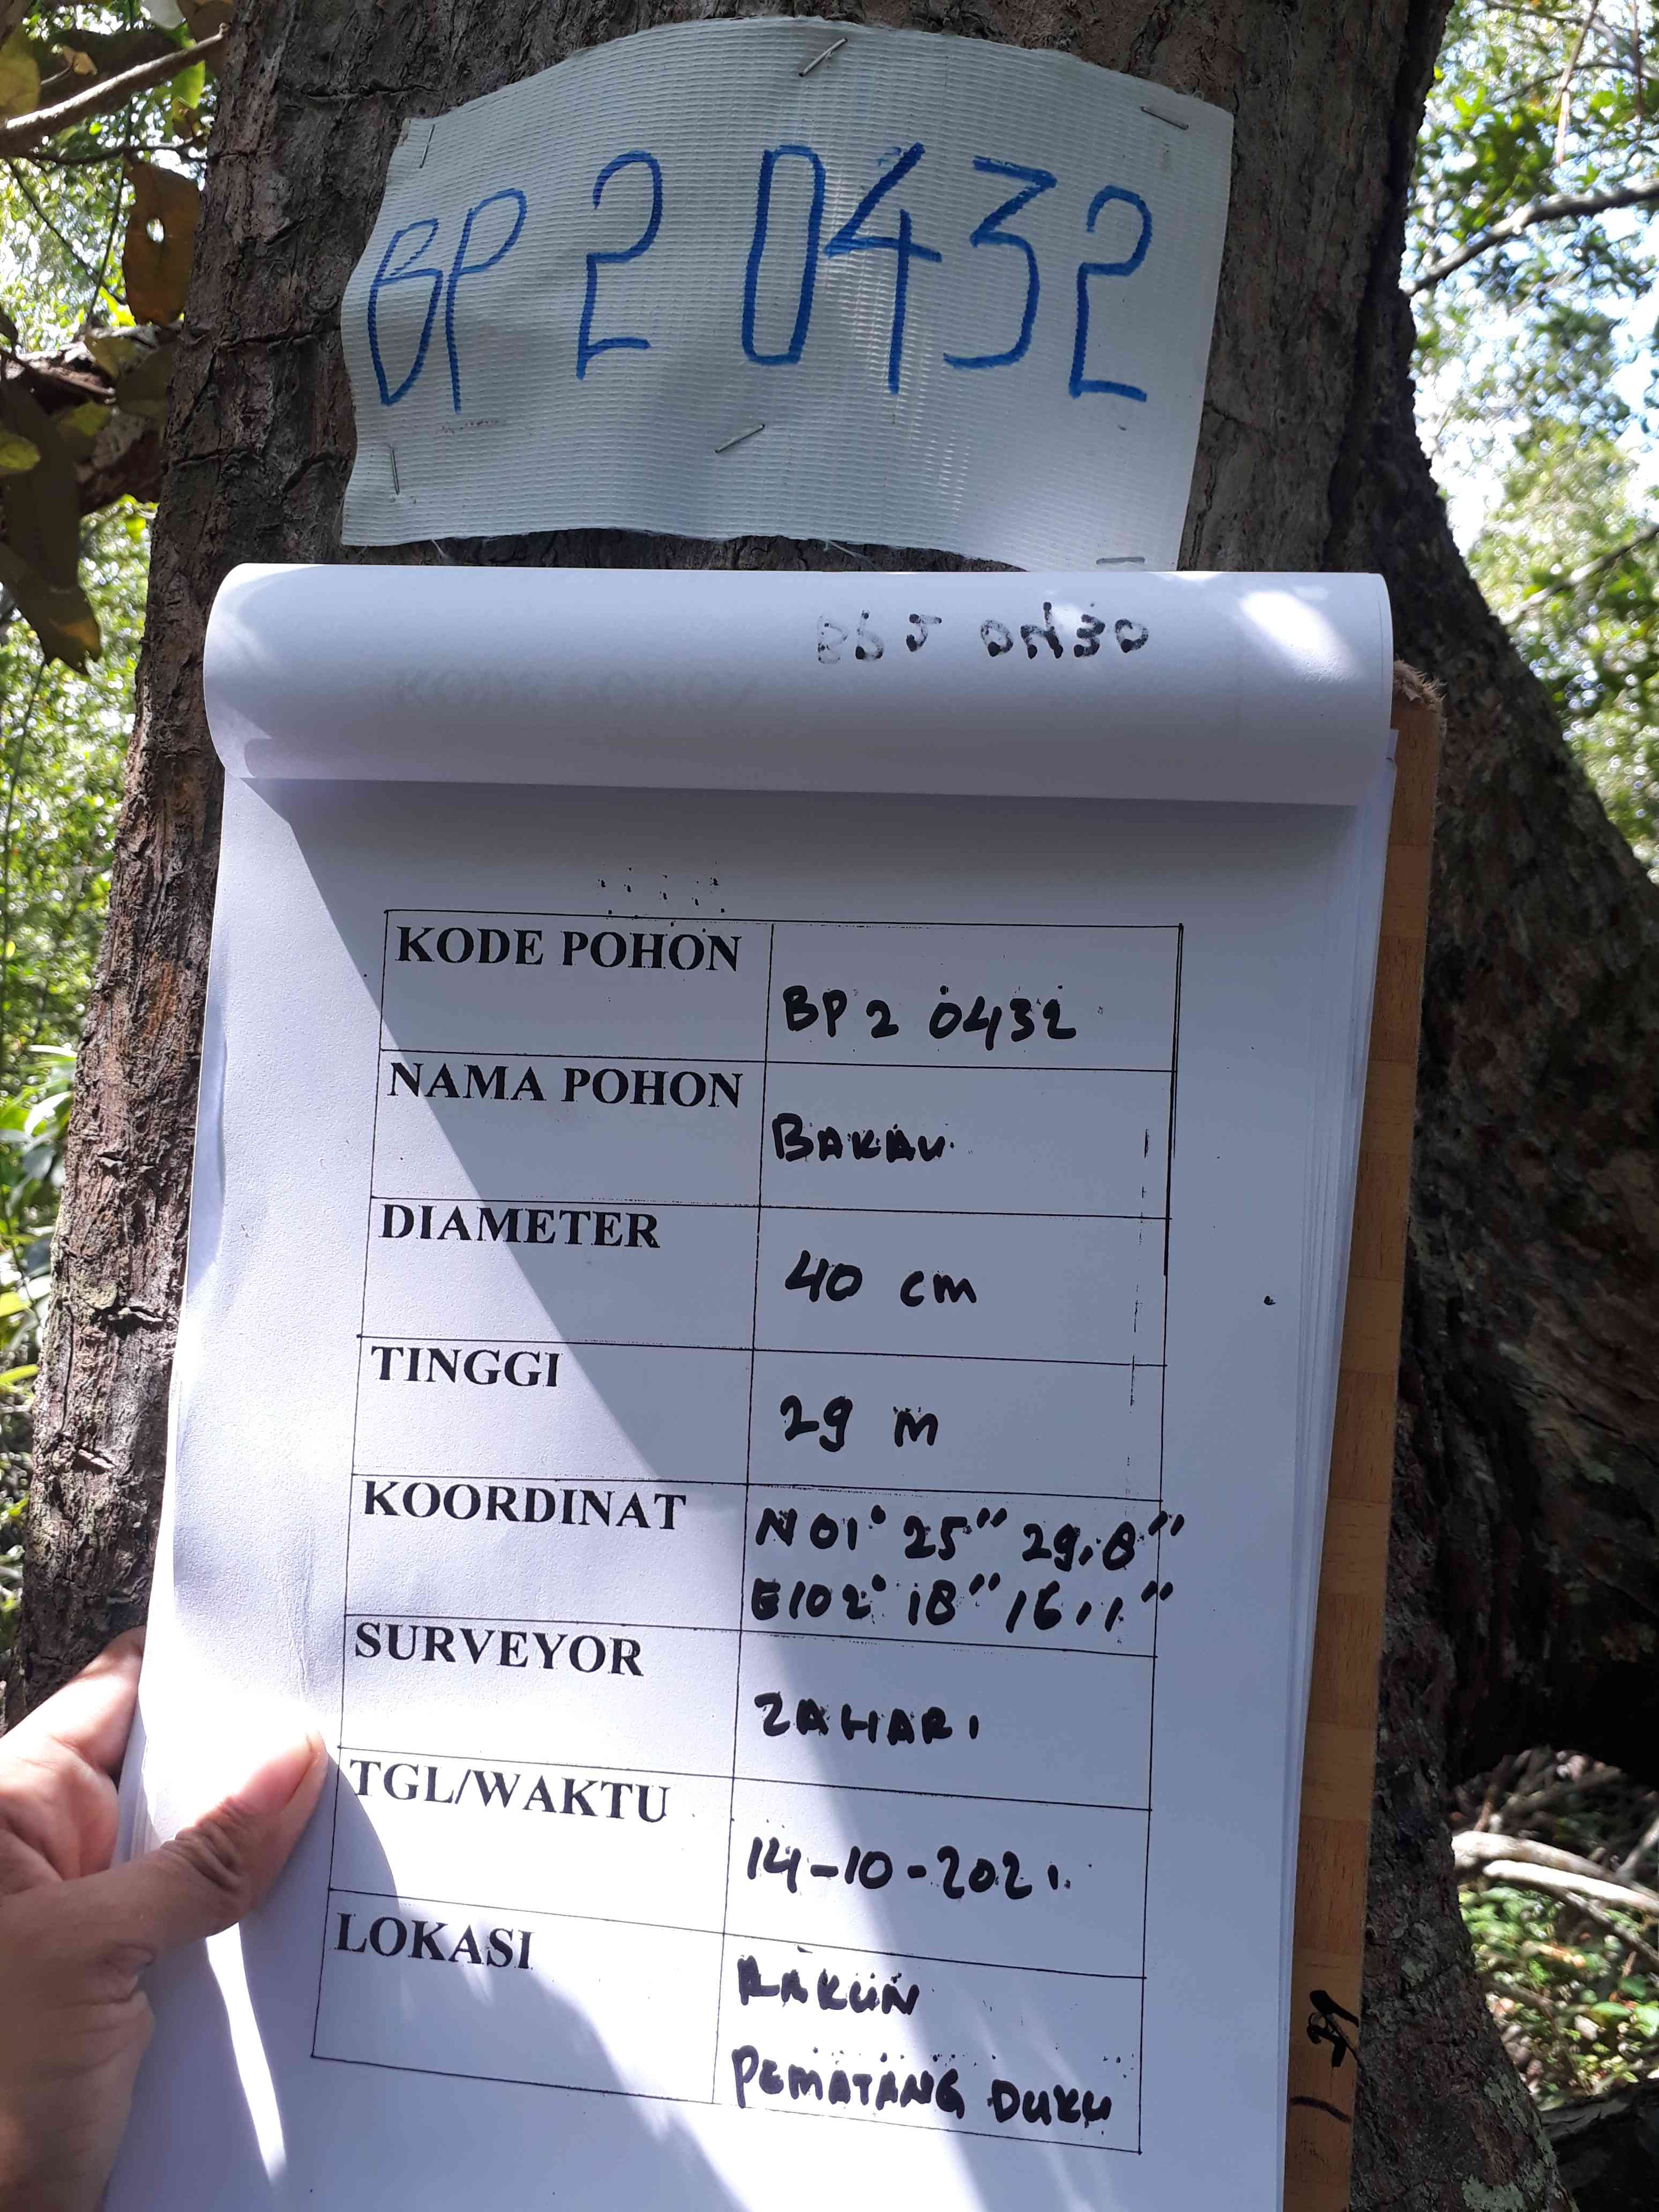 BP 2 0432
KODE POHON
BP 2 0432
NAMA POHON
BAKAU
DIAMETER
40 cm
TINGGI
29 m
KOORDINAT
N 01° 25" 29,8"
E102° 18" 16,1"
SURVEYOR
ZAHARI
TGL/WAKTU
14-10-2021.
LOKASI
PEMATANG DUKU